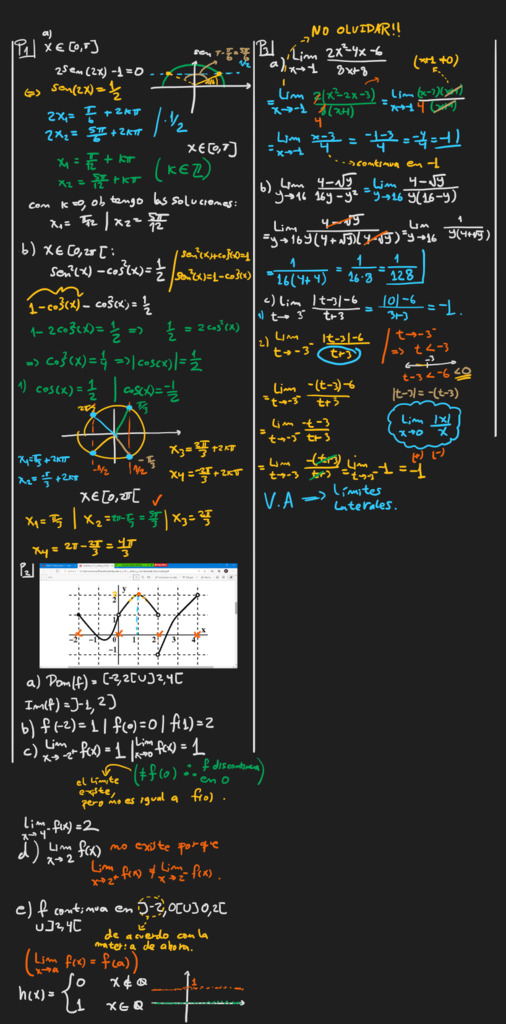 P1 a)
x ∈ [0, π]
2sen(2x) - 1 = 0
⇔ sen(2x) = 1/2
2x₁ = π/6 + 2kπ
2x₂ = 5π/6 + 2kπ / · 1/2
x ∈ [0, π]
x₁ = π/12 + kπ
x₂ = 5π/12 + kπ (k ∈ ℤ)
con k=0, obtengo las soluciones:
x₁ = π/12 | x₂ = 5π/12
sen π - π/6 = 5π/6
1/2
b) x ∈ [0, 2π[ :
sen²(x) - cos²(x) = 1/2
sen²(x) + cos²(x) = 1
sen²(x) = 1 - cos²(x)
1 - cos²(x) - cos²(x) = 1/2
1 - 2cos²(x) = 1/2 ⇒ 1/2 = 2cos²(x)
⇒ cos²(x) = 1/4 ⇒ |cos(x)| = 1/2
1) cos(x) = 1/2 | cos(x) = -1/2
2π/3 π/3
-1/2 1/2 -π/3
x₁ = π/3 + 2kπ
x₂ = -π/3 + 2kπ
x₃ = 2π/3 + 2kπ
x₄ = -2π/3 + 2kπ
x ∈ [0, 2π[ ✓
x₁ = π/3 | x₂ = 2π - π/3 = 5π/3 | x₃ = 2π/3
x₄ = 2π - 2π/3 = 4π/3
P2
y
2
1
-2 -1 0 1 2 3 4 x
-1
a) Dom(f) = [-2, 2[ ∪ ]2, 4[
Im(f) = ]-1, 2]
b) f(-2) = 1 | f(0) = 0 | f(1) = 2
c) Lim x→-2⁺ f(x) = 1 | Lim x→0 f(x) = 1
(≠ f(0) ∴ f discontinua en 0)
el límite
existe,
pero no es igual a f(0).
Lim x→4⁻ f(x) = 2
d) Lim x→2 f(x) no existe porque
Lim x→2⁺ f(x) ≠ Lim x→2⁻ f(x).
e) f continua en ]-2, 0[ ∪ ]0, 2[
∪ ]2, 4[
de acuerdo con la
materia de ahora.
(Lim x→a f(x) = f(a))
h(x) = { 0 x ∉ ℚ
1 x ∈ ℚ
1
NO OLVIDAR!!
P3
a) Lim x→-1 (2x² - 4x - 6)/(8x + 8)
(x+1 ≠ 0)
= Lim x→-1 2(x² - 2x - 3)/8(x+1) = Lim x→-1 (x-3)(x+1)/4(x+1)
4
= Lim x→-1 (x-3)/4 = (-1-3)/4 = -4/4 = -1
continua en -1
b) Lim y→16 (4 - √y)/(16y - y²) = Lim y→16 (4 - √y)/y(16 - y)
= Lim y→16 (4 - √y)/y(4 + √y)(4 - √y) = Lim y→16 1/y(4 + √y)
= 1/16(4+4) = 1/16·8 = 1/128
c) Lim t→3⁻ (|t-3| - 6)/(t+3) = (|0| - 6)/(3+3) = -1.
1)
2) Lim t→-3⁻ (|t-3| - 6)/(t+3)
t → -3⁻
⇒ t < -3
-3
t - 3 < -6 < 0
|t-3| = -(t-3)
= Lim t→-3⁻ (-(t-3) - 6)/(t+3)
Lim x→0 |x|/x
(+) (-)
= Lim t→-3⁻ (-t - 3)/(t+3)
= Lim t→-3⁻ -(t+3)/(t+3) = Lim t→-3⁻ -1 = -1
V.A ⇒ Límites
laterales.